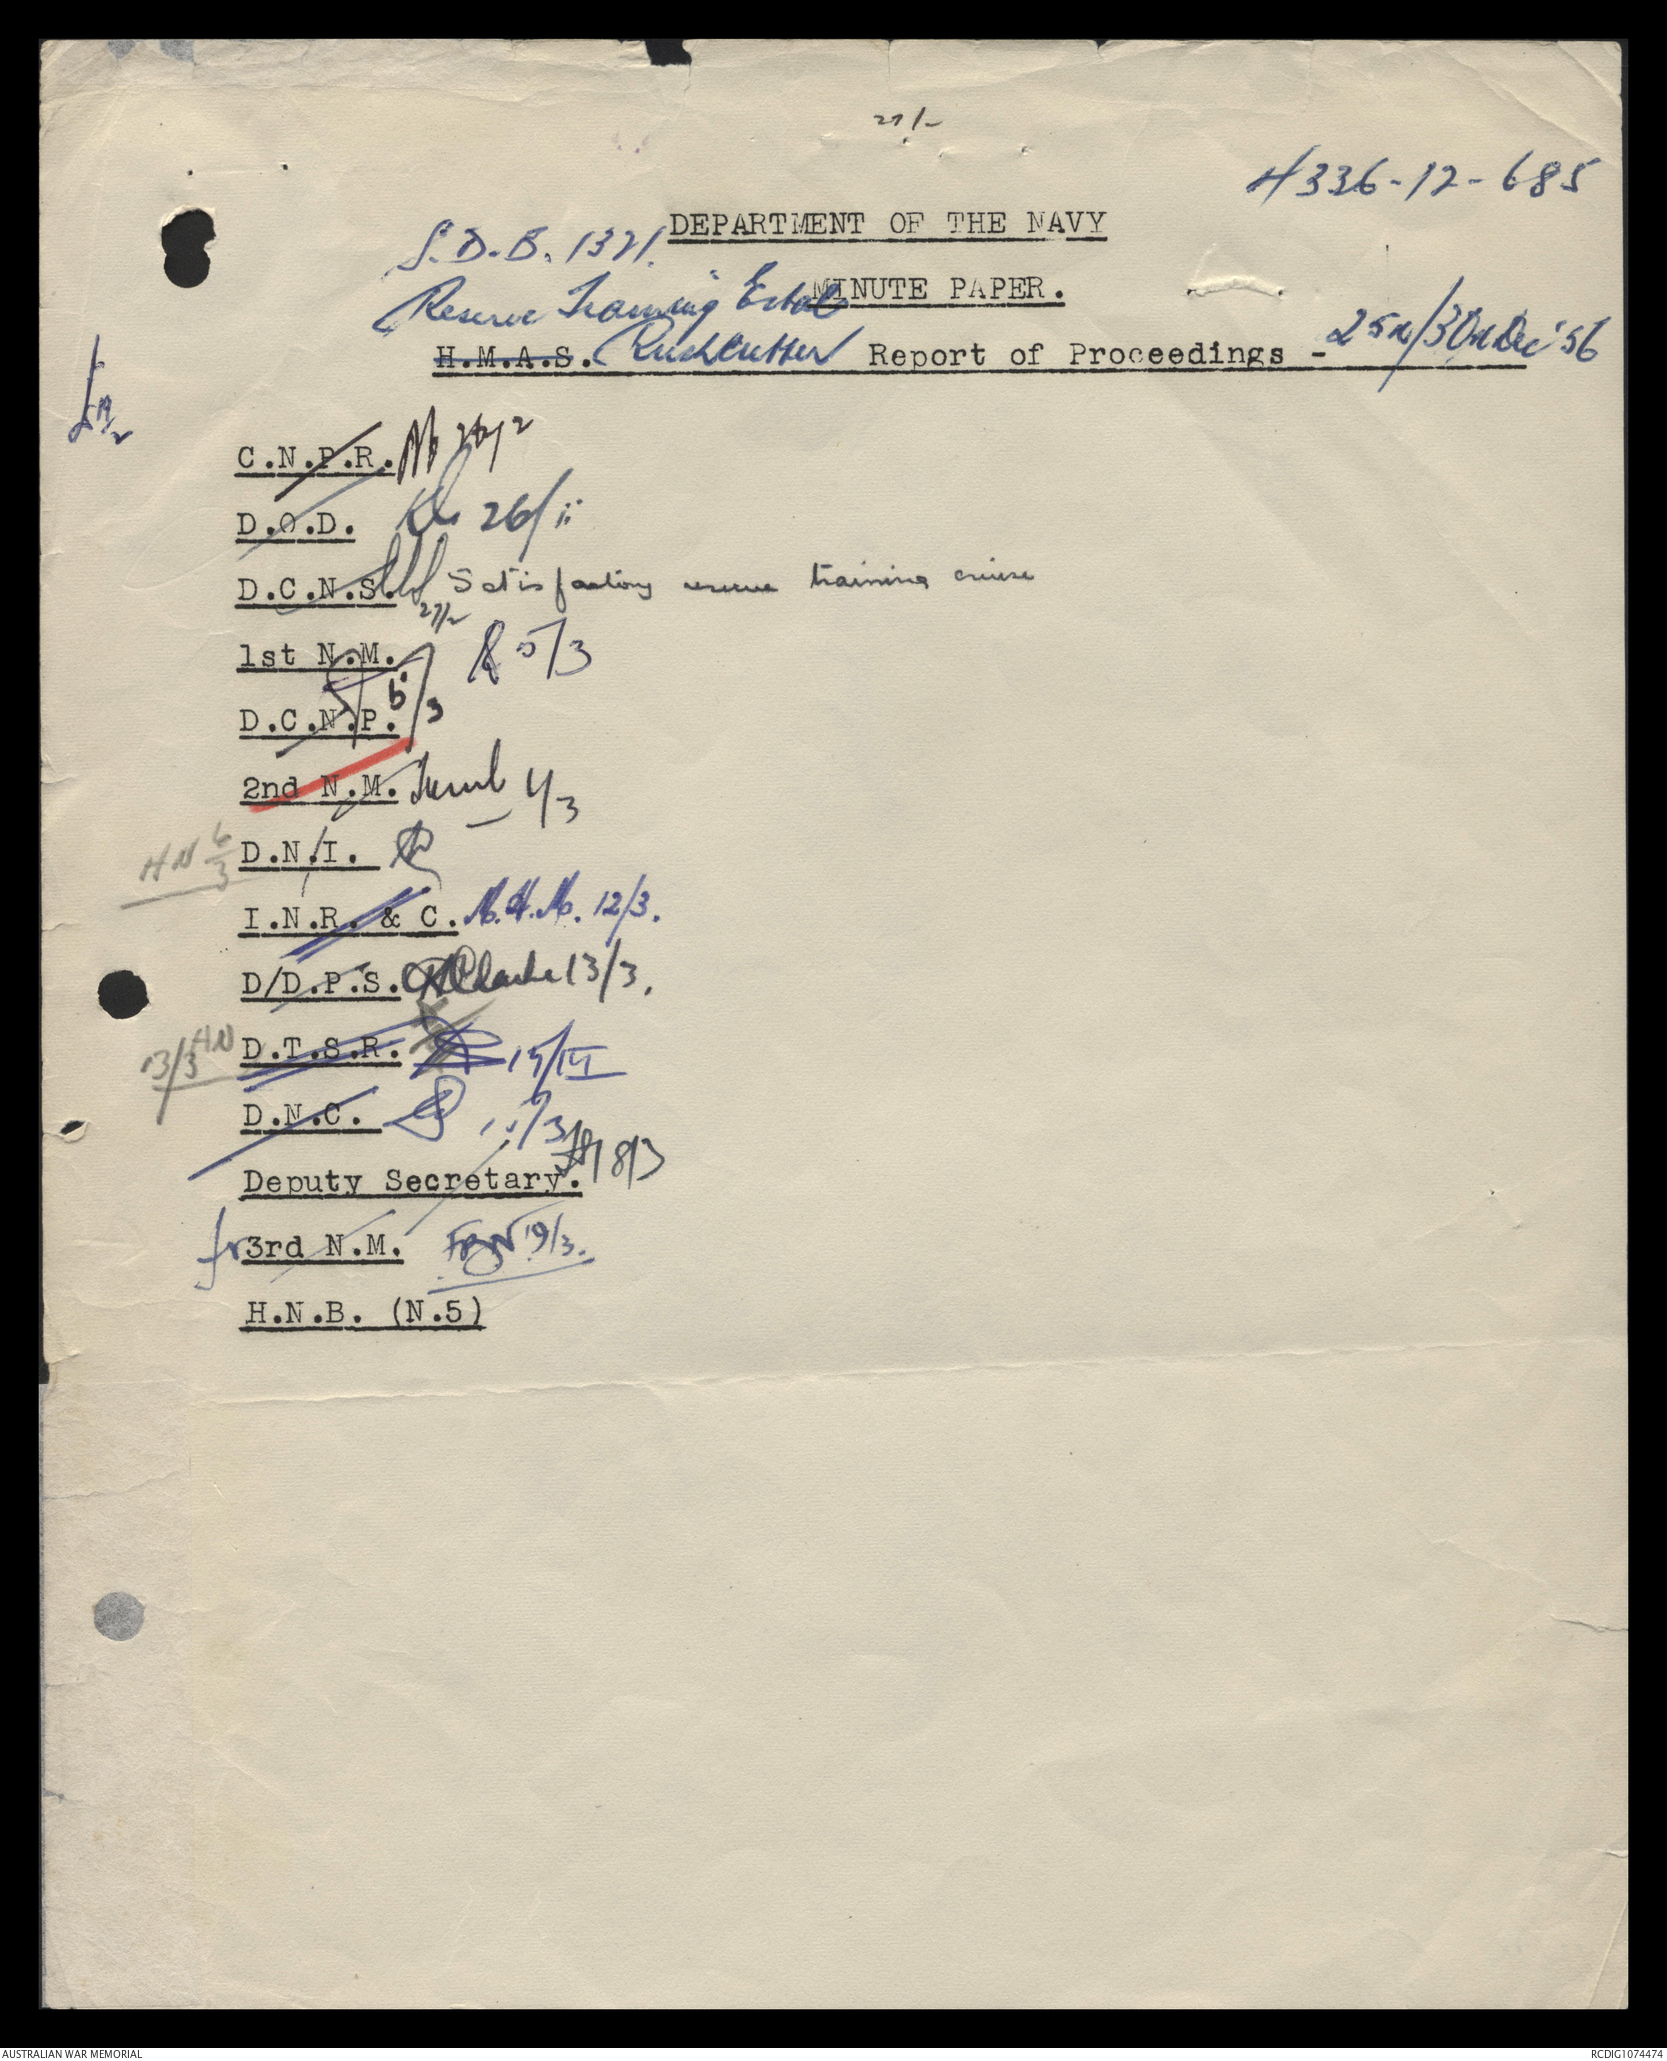 27/-
4336-12-685
DEPARTMENT OF THE NAVY
S.D.B. 1321.
MINUTE PAPER.
Reserve Training Estab
H.M.A.S. Rushcutter Report of Proceedings - 25th/30th Dec '56
C.N.P.R. 26/2
D.O.D. 26/ii
D.C.N.S. Satisfactory reserve training cruise
27/2
1st N.M. 5/3
6/3
D.C.N.P.
2nd N.M. 4/3
HN 6/3 D.N.I.
I.N.R. & C. 12/3.
D/D.P.S. Clarke 13/3.
13/3 HN D.T.S.R.
D.N.C.
Deputy Secretary. 18/3
for 3rd N.M. 19/3.
H.N.B. (N.5)
AUSTRALIAN WAR MEMORIAL
RCDIG1074474